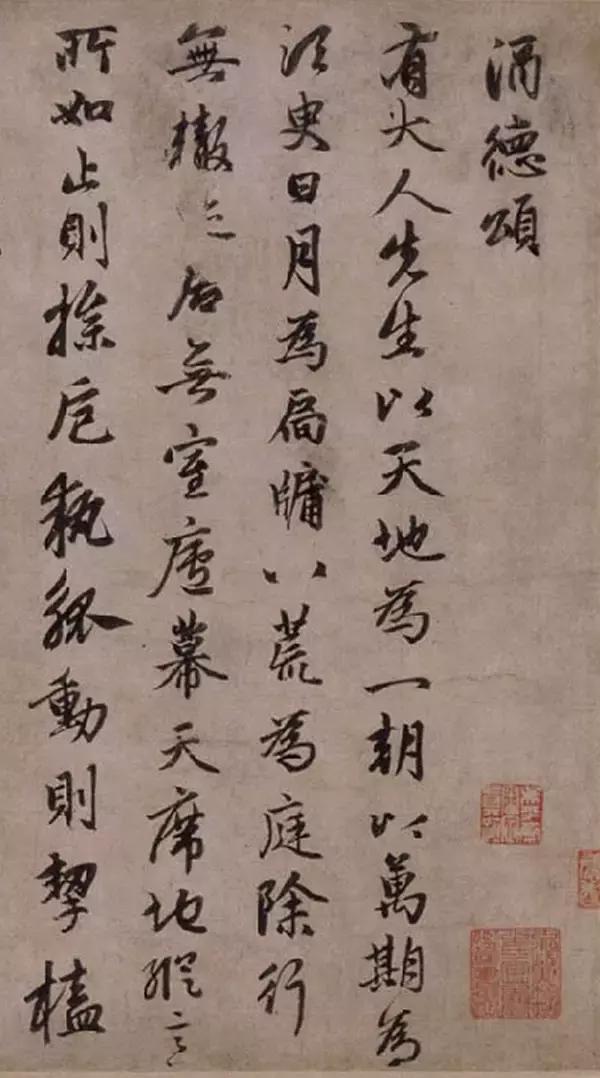 酒德頌
有大人先生以天地為一朝以萬期為
須臾日月為扃牖八荒為庭除行
無轍迹居無室廬幕天席地縱意
所如止則操卮執觚動則挈榼